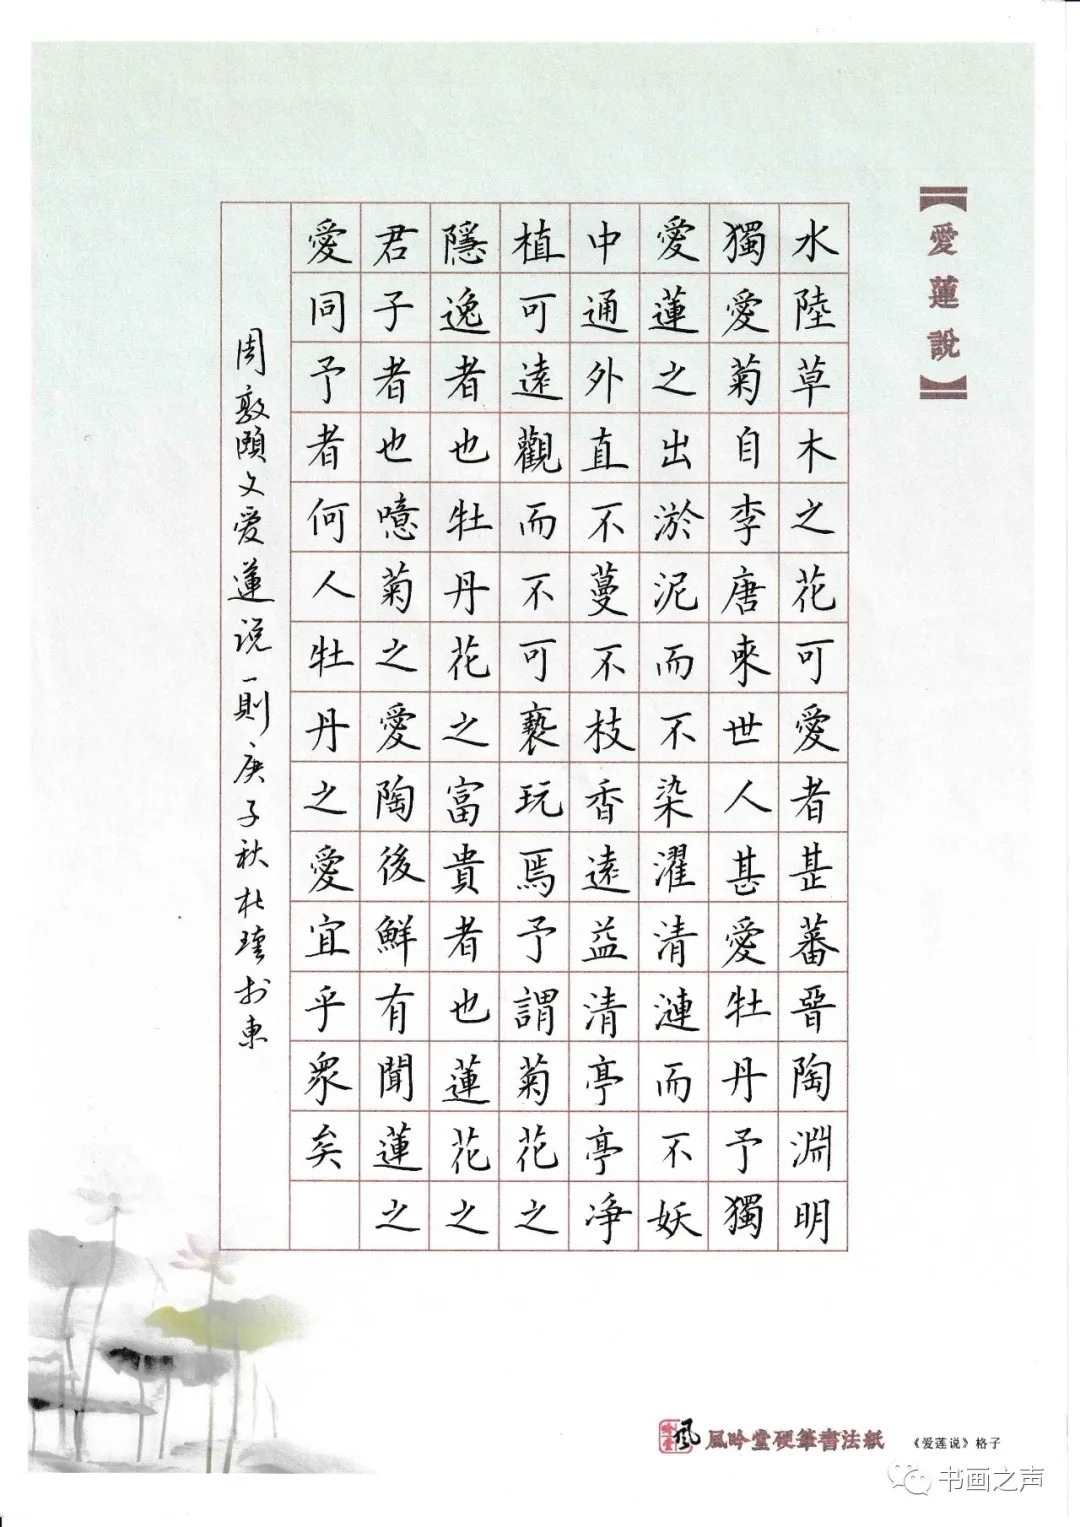 【愛蓮說】
水陸草木之花可愛者甚蕃晉陶淵明
獨愛菊自李唐來世人甚愛牡丹予獨
愛蓮之出淤泥而不染濯清漣而不妖
中通外直不蔓不枝香遠益清亭亭净
植可遠觀而不可褻玩焉予謂菊花之
隱逸者也牡丹花之富貴者也蓮花之
君子者也噫菊之愛陶後鮮有聞蓮之
愛同予者何人牡丹之愛宜乎眾矣
周敦頤文爱蓮说一則庚子秋杜瑾於東
吟堂風
風吟堂硬筆書法紙
《爱莲说》格子
书画之声